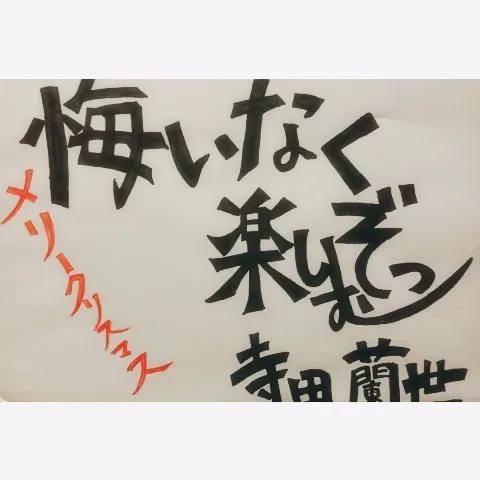 悔いなく
楽しむぞっ
メリークリスマス
寺田蘭世